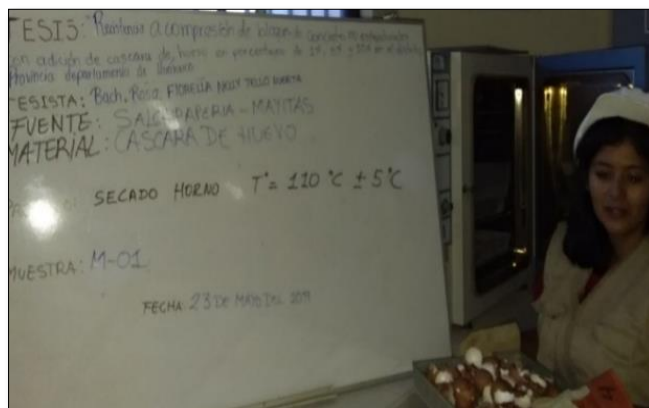 TESIS: "Resistencia a compresión de bloques de concreto no estructurales
con adición de cascara de huevo en porcentaje de
Provincia departamento de
TESISTA: Bach. Rosa FIORELLA NELLY TELLO
FUENTE: SALCHIPAPERIA - MAYITAS
MATERIAL: CASCARA DE HUEVO
SECADO HORNO T°= 110 °C ± 5°C
MUESTRA: M-01
FECHA: 23 DE MAYO DEL 2019